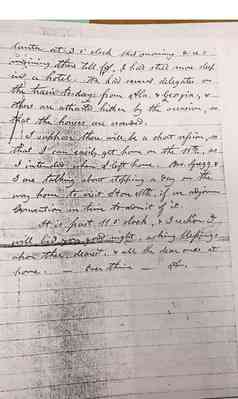 at 3 o'clock this morning &
I had still more sleep
in a hotel. We had several delegates on
the train to-day from Ala. & Georgia, &
others are attracted hither by the occasion, so
that the houses are crowded.
I suppose there will be a short session, so
that I can easily get home on the 18th, as
I intended when I left home. Bro. &
I are talking about stopping a day on the
way home to visit Stone Mt., if we adjourn
Convention in time to admit of it.
It is past 11 o'clock, & I reckon I
will bid you good night, asking blessings
upon thee, dearest, & all the dear ones at
home. — Ever thine —